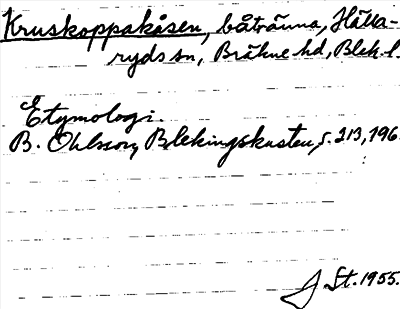 Kruskoppakåsen, båtränna, Hälla-
ryds sn, Bräkne hd, Blek. l.
Etymologi.
B. Ohlsson, Blekingskusten, s. 213, 196.
J St. 1955.